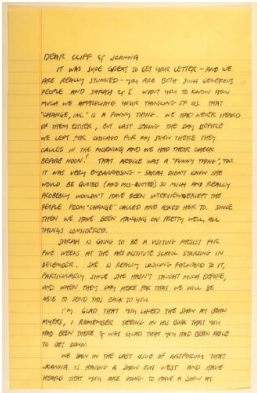 DEAR CLIFF & JOANNA
IT WAS SURE GREAT TO GET YOUR LETTER - AND WE
ARE REALLY STUNNED - YOU ARE BOTH SUCH GENEROUS
PEOPLE AND SARAH & I WANT YOU TO KNOW HOW
MUCH WE APPRECIATE YOUR THINKING OF US. THAT
"CHANGE, INC." IS A FUNNY THING. WE HAD NEVER HEARD
OF THEM EITHER, BUT LAST SPRING THE DAY BEFORE
WE LEFT FOR CHICAGO FOR MY OPEN THERE THEY
CALLED IN THE MORNING AND WE HAD THEIR CHECK
BEFORE NOON! THAT ARTICLE WAS A "FUNNY THING", TOO
IT WAS VERY EMBARRASSING - SARAH DIDN'T KNOW SHE
WOULD BE QUOTED (AND MIS-QUOTED) SO MUCH AND REALLY
PROBABLY WOULDN'T HAVE BEEN INTERVIEWED EXCEPT THE
PEOPLE FROM "CHANGE" CALLED AND ASKED HER TO. SINCE
THEN WE HAVE BEEN HANGING ON PRETTY WELL, ALL
THINGS CONSIDERED.
SARAH IS GOING TO BE A VISITING ARTIST FOR
FIVE WEEKS AT THE ART INSTITUTE SCHOOL STARTING IN
DECEMBER. SHE IS REALLY LOOKING FORWARD TO IT,
PARTICULARLY SINCE SHE HASN'T TAUGHT MUCH BEFORE,
AND WHEN THEY PAY HERE FOR THAT WE WILL BE
ABLE TO SEND THIS BACK TO YOU.
I'M GLAD THAT YOU LIKED THE SHOW AT
MYERS, I REMEMBER SEEING IN HIS BOOK THAT YOU
HAD BEEN THERE & WAS GLAD THAT YOU HAD BEEN ABLE
TO GET DOWN.
WE SAW IN THE LAST ISSUE OF THAT
JOANNA IS HAVING A SHOW OUT WEST AND HAVE
HEARD THAT YOU ARE GOING TO HAVE A SHOW AT